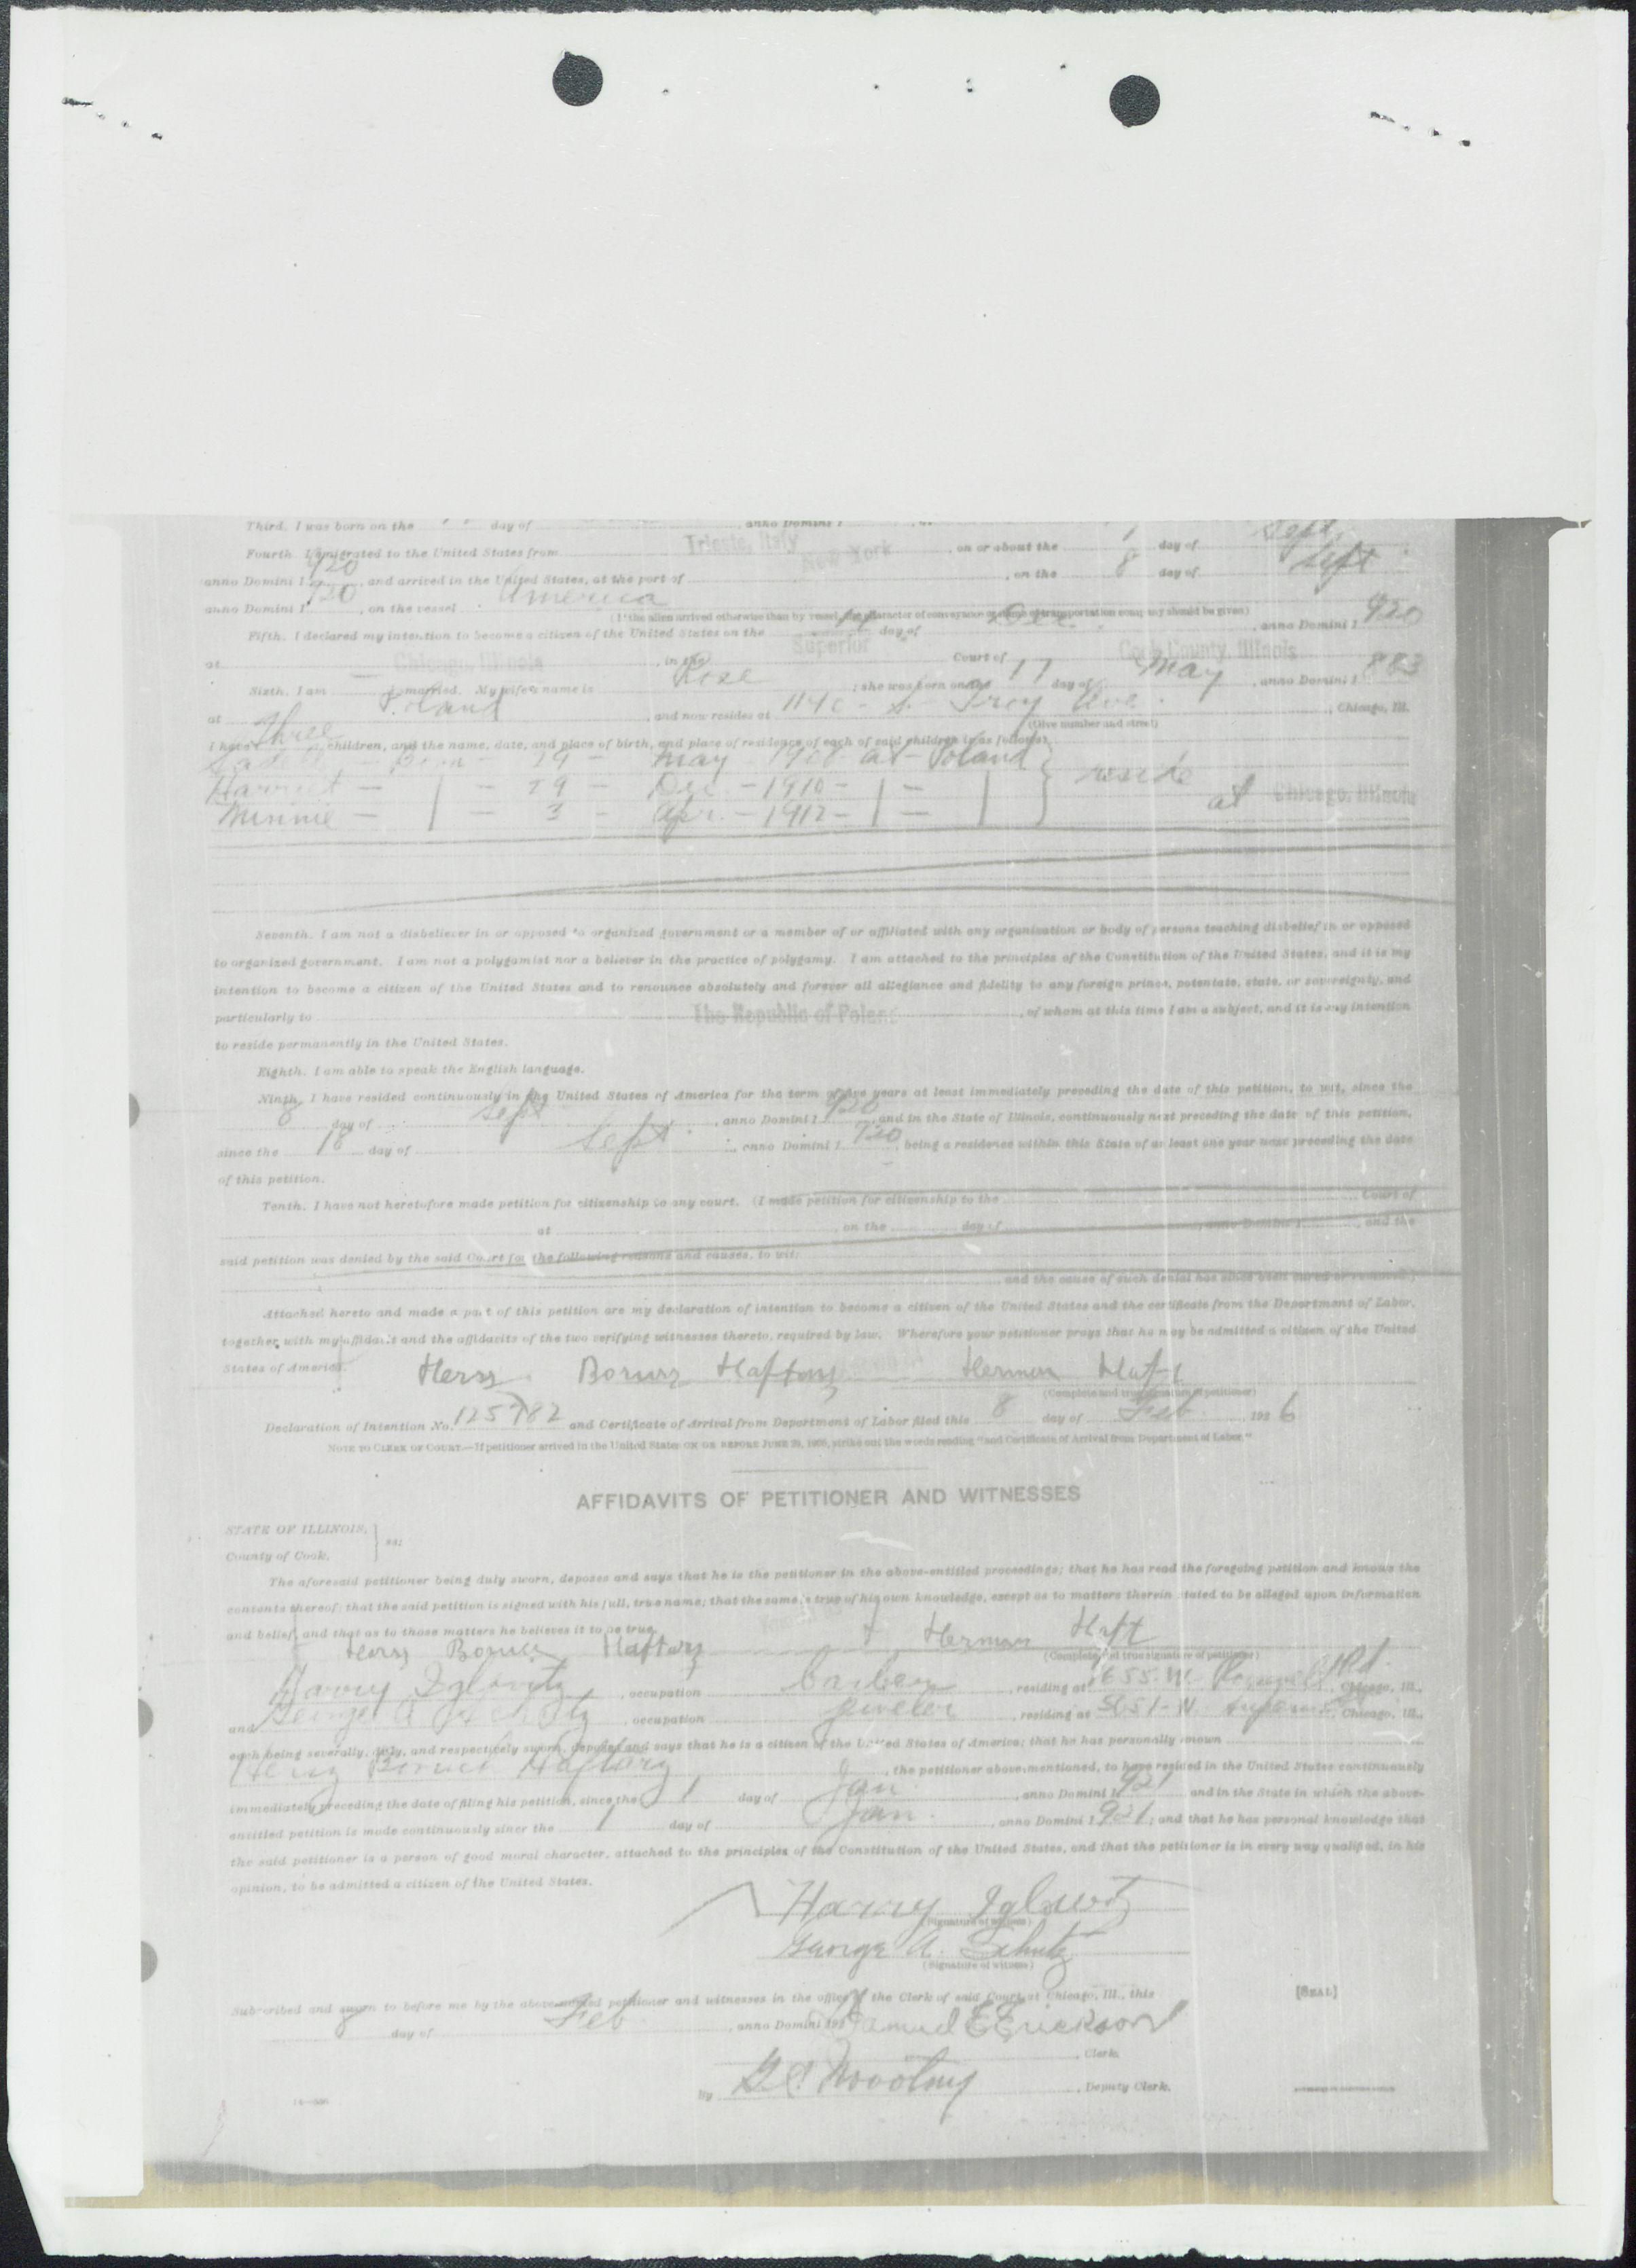 Third. I was born on the day of , anno Domini 1
Fourth. I emigrated to the United States from Trieste, Italy , on or about the 1 day of Sept.
anno Domini 1 920 , and arrived in the United States, at the port of New York , on the 8 day of Sept
anno Domini 1 920 , on the vessel America
(If the alien arrived otherwise than by vessel, the character of conveyance or name of transportation company should be given)
Fifth. I declared my intention to become a citizen of the United States on the day of , anno Domini 1 920
at Chicago, Illinois , in the Superior Court of Cook County, Illinois
Sixth. I am married. My wife's name is Rose ; she was born on the 17 day of May , anno Domini 1 883
at Poland , and now resides at S. Troy Ave. , Chicago, Ill.
(Give number and street)
I have three children, and the name, date, and place of birth, and place of residence of each of said children is as follows:
Born - 19 - May 1908 at - Poland
Harriet - | - 29 - Dec. - 1910 - | - | } reside
Minnie - | - 3 - Apr. - 1912 - | - | at Chicago, Illinois
Seventh. I am not a disbeliever in or opposed to organized government or a member of or affiliated with any organization or body of persons teaching disbelief in or opposed
to organized government. I am not a polygamist nor a believer in the practice of polygamy. I am attached to the principles of the Constitution of the United States, and it is my
intention to become a citizen of the United States and to renounce absolutely and forever all allegiance and fidelity to any foreign prince, potentate, state, or sovereignty, and
particularly to The Republic of Poland , of whom at this time I am a subject, and it is my intention
to reside permanently in the United States.
Eighth. I am able to speak the English language.
Ninth. I have resided continuously in the United States of America for the term of five years at least immediately preceding the date of this petition, to wit, since the
8 day of Sept , anno Domini 1 920 , and in the State of Illinois, continuously next preceding the date of this petition,
since the 18 day of Sept. , anno Domini 1 920 , being a residence within this State of at least one year next preceding the date
of this petition.
Tenth. I have not heretofore made petition for citizenship to any court. (I made petition for citizenship to the Court of
at , on the day of , anno Domini 1 , and the
said petition was denied by the said Court for the following reasons and causes, to wit:
and the cause of such denial has since been cured or removed.)
Attached hereto and made a part of this petition are my declaration of intention to become a citizen of the United States and the certificate from the Department of Labor,
together with my affidavit and the affidavits of the two verifying witnesses thereto, required by law. Wherefore your petitioner prays that he may be admitted a citizen of the United
States of America. Hersz Borucz Haftarz Herman Haft
(Complete and true signature of petitioner)
Declaration of Intention No. 125782 and Certificate of Arrival from Department of Labor filed this 8 day of Feb. , 192 6
NOTE TO CLERK OF COURT.—If petitioner arrived in the United States ON OR BEFORE JUNE 29, 1906, strike out the words reading "and Certificate of Arrival from Department of Labor."
AFFIDAVITS OF PETITIONER AND WITNESSES
STATE OF ILLINOIS, } ss:
County of Cook.
The aforesaid petitioner being duly sworn, deposes and says that he is the petitioner in the above-entitled proceedings; that he has read the foregoing petition and knows the
contents thereof; that the said petition is signed with his full, true name; that the same is true of his own knowledge, except as to matters therein stated to be alleged upon information
and belief, and that as to those matters he believes it to be true.
Hersz Borucz Haftarz Herman Haft
(Complete and true signature of petitioner)
Harry Iglowitz , occupation barber , residing at 1655 W. Roosevelt Rd. , Chicago, Ill.,
and George A Schultz , occupation jeweler , residing at W Superior , Chicago, Ill.,
each being severally, duly, and respectively sworn, deposes and says that he is a citizen of the United States of America; that he has personally known
Hersz Haftarz , the petitioner above mentioned, to have resided in the United States continuously
immediately preceding the date of filing his petition, since the 1 day of Jan. , anno Domini 1 921 and in the State in which the above-
entitled petition is made continuously since the 1 day of Jan. , anno Domini 1 921 ; and that he has personal knowledge that
the said petitioner is a person of good moral character, attached to the principles of the Constitution of the United States, and that the petitioner is in every way qualified, in his
opinion, to be admitted a citizen of the United States.
Harry Iglowitz
(Signature of witness)
George A. Schultz
(Signature of witness)
Subscribed and sworn to before me by the above-named petitioner and witnesses in the office of the Clerk of said Court at Chicago, Ill., this [SEAL]
8 day of Feb , anno Domini 192 Samuel E Erickson
, Clerk.
By Novotny , Deputy Clerk.